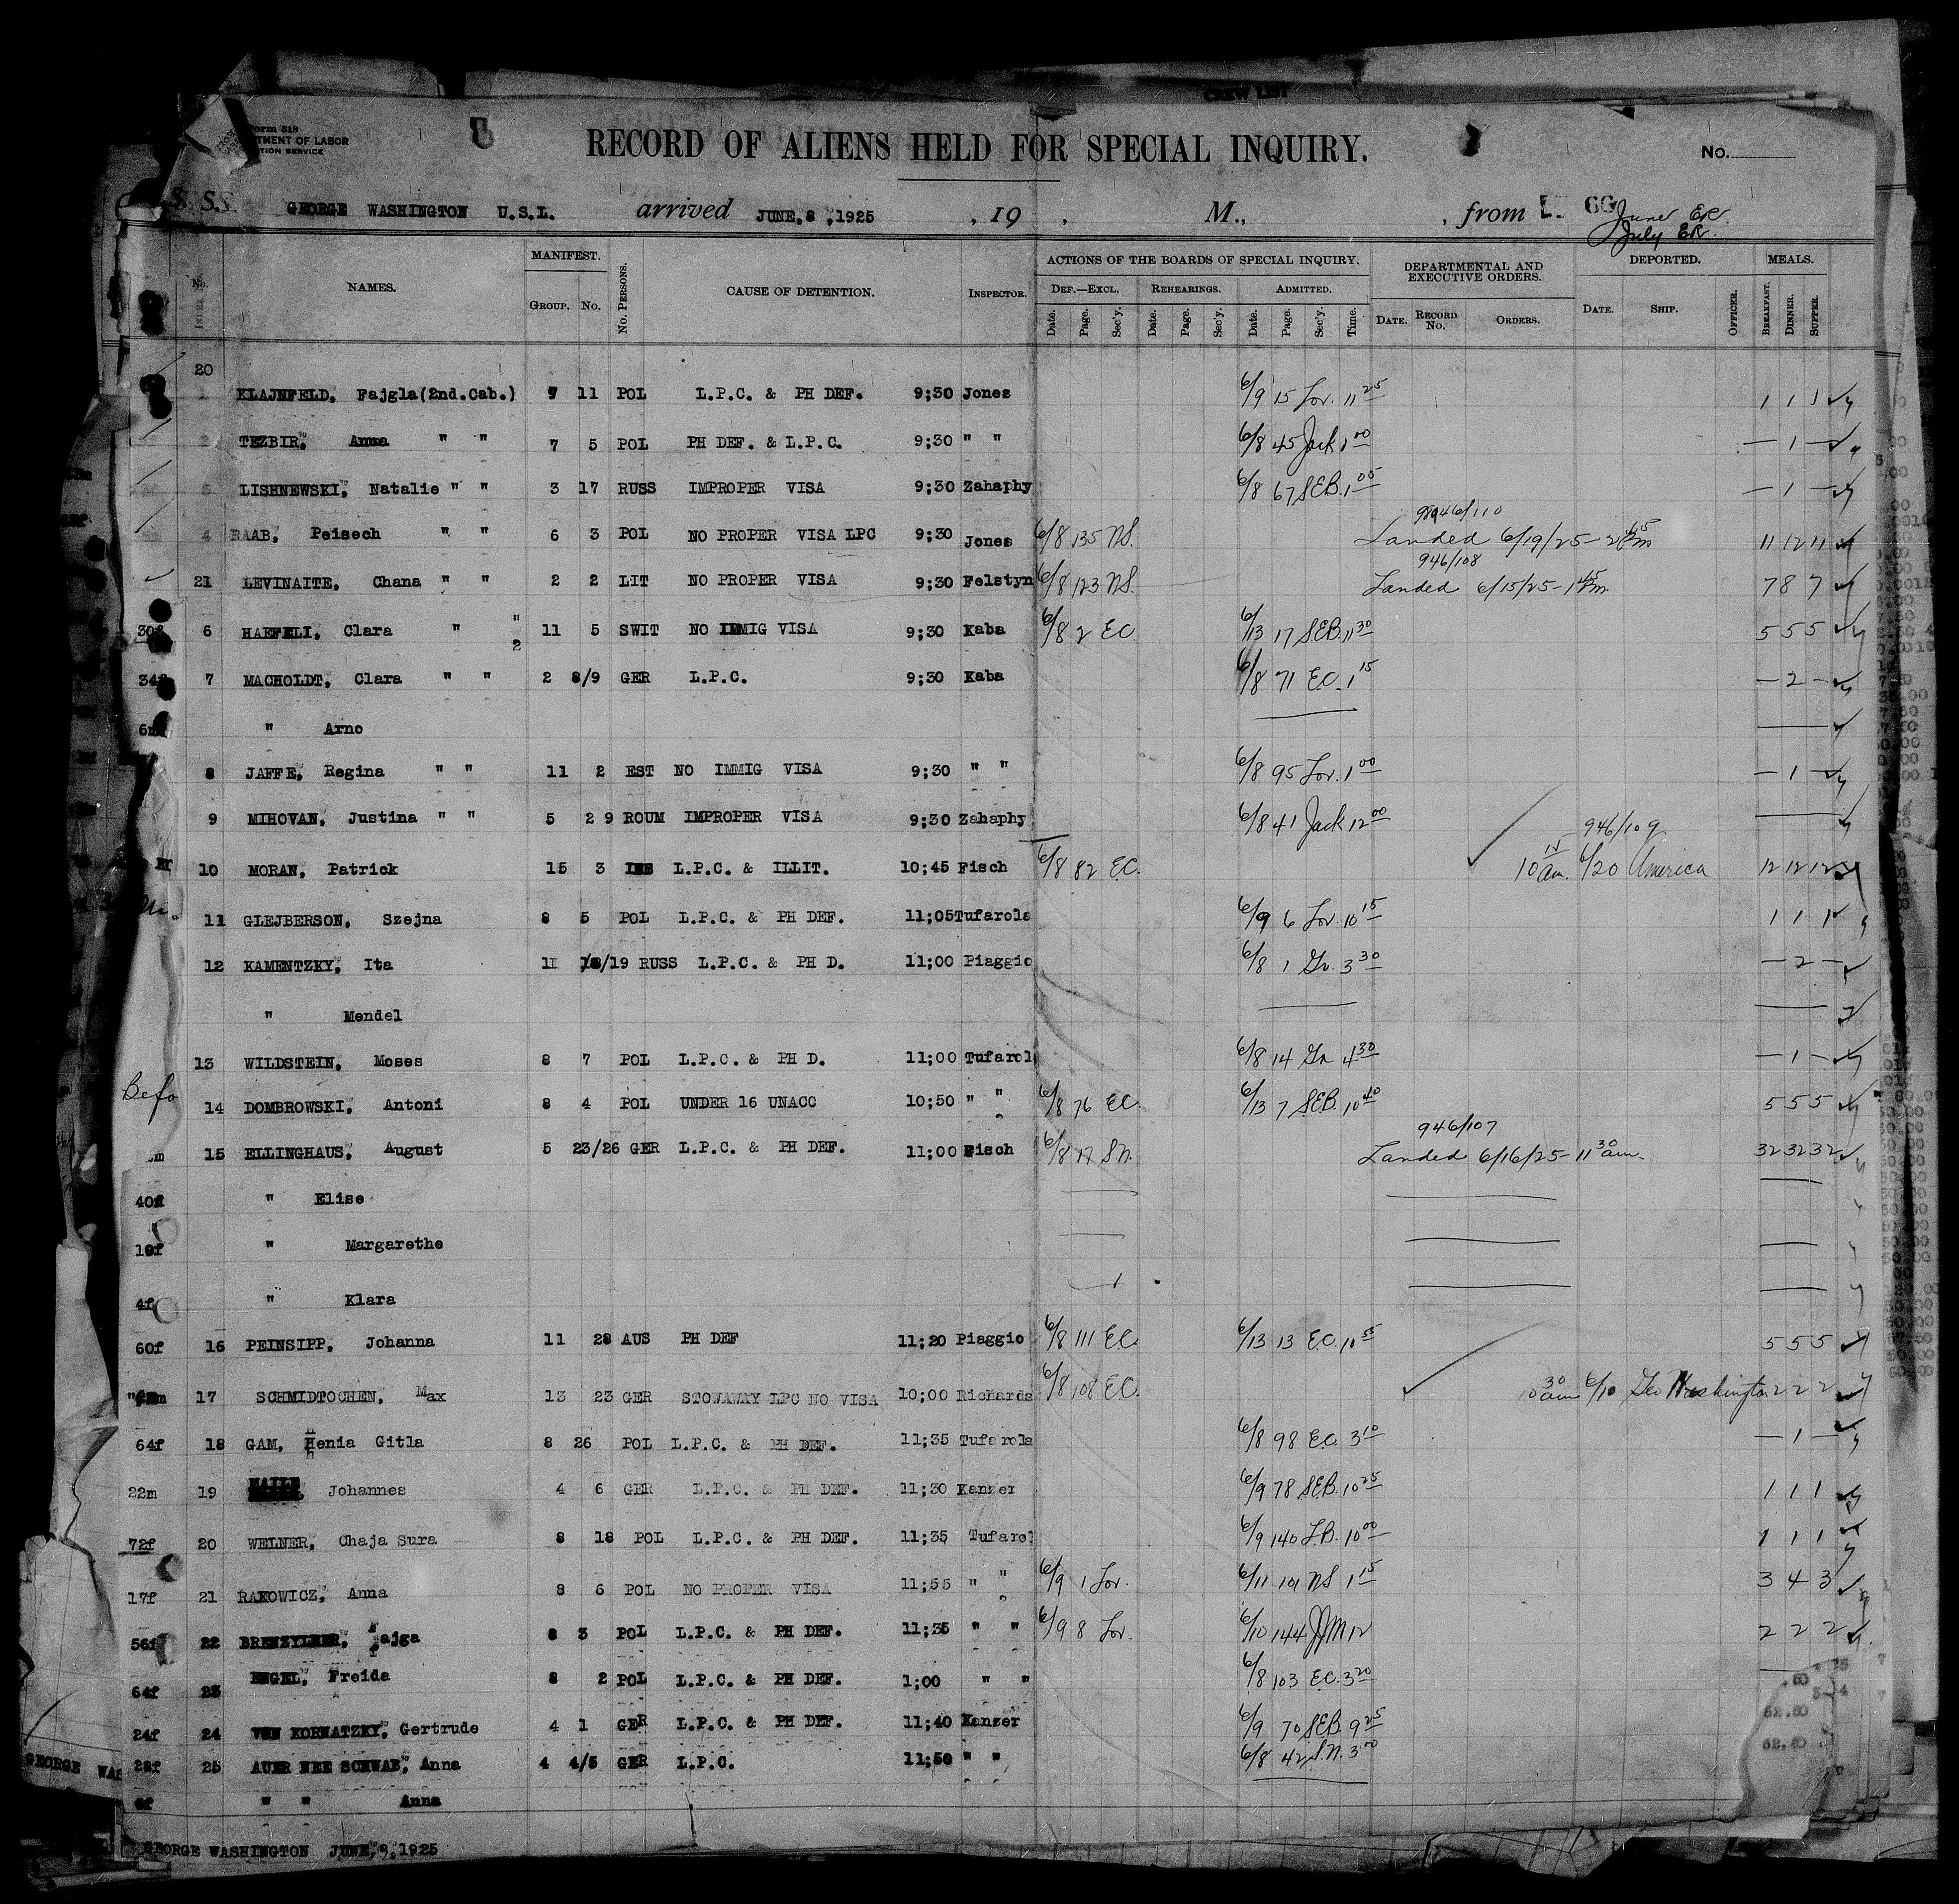 Form 318
TMENT OF LABOR
TION SERVICE
RECORD OF ALIENS HELD FOR SPECIAL INQUIRY.
No.
S. S. GEORGE WASHINGTON U.S.L. arrived JUNE,8 ,1925 , 19 , M., , from
June ER.
July ER.
No. NAMES. MANIFEST. GROUP. No. No. PERSONS. CAUSE OF DETENTION. INSPECTOR. ACTIONS OF THE BOARDS OF SPECIAL INQUIRY. DEPARTMENTAL AND EXECUTIVE ORDERS. DEPORTED. MEALS.
DEF.—EXCL. REHEARINGS. ADMITTED.
Date. Page. Sec'y. Date. Page. Sec'y. Date. Page. Sec'y. Time. DATE. RECORD No. ORDERS. DATE. SHIP. OFFICER. BREAKFAST. DINNER. SUPPER.
20
KLAJNFELD, Fajgla(2nd.Cab.) 7 11 POL L.P.C. & PH DEF. 9;30 Jones 6/9 15 Lov. 11 25 1 1 1
2 TEZBIR, Anna " " 7 5 POL PH DEF. & L.P.C. 9;30 " " 6/8 45 Jack 1 00 — 1 —
LISHNEWSKI, Natalie " " 3 17 RUSS IMPROPER VISA 9;30 Zahaphy 6/8 67 SEB. 1 05 — 1 —
4 RAAB, Peisech " " 6 3 POL NO PROPER VISA LPC 9;30 Jones 6/8 135 NS. Landed 6/19/25 - 11 12 11
21 LEVINAITE, Chana " " 2 2 LIT NO PROPER VISA 9;30 Felstyn 6/8 123 NS. 946/108 Landed 6/15/25 - 1 45 pm 7 8 7
6 HAEFELI, Clara " " 11 5 SWIT NO IMMIG VISA 9;30 Kaba 6/8 2 EC 6/13 17 SEB. 11 30 5 5 5
34f 7 MACHOLDT, Clara " " 2 8/9 GER L.P.C. 9;30 Kaba 6/8 71 E.C. 1 15 — 2 —
" Arno
8 JAFFE, Regina " " 11 2 EST NO IMMIG VISA 9;30 " " 6/8 95 Lov. 1 00 — 1 —
9 MIHOVAN, Justina " " 5 29 ROUM IMPROPER VISA 9;30 Zahaphy 6/8 41 Jack 12 00
10 MORAN, Patrick 15 3 L.P.C. & ILLIT. 10;45 Fisch 6/8 82 E.C. 946/109 10 15 am. 6/20 America 12 12 12
11 GLEJBERSON, Szejna 8 5 POL L.P.C. & PH DEF. 11;05 Tufarola 6/9 6 Lov. 10 15 1 1 1
12 KAMENTZKY, Ita 11 18/19 RUSS L.P.C. & PH D. 11;00 Piaggio 6/8 1 Gr. 3 30 — 2 —
" Mendel
13 WILDSTEIN, Moses 8 7 POL L.P.C. & PH D. 11;00 Tufarol 6/8 14 Gr 4 30 — 1 —
Befo
14 DOMBROWSKI, Antoni 8 4 POL UNDER 16 UNACC 10;50 " " 6/8 76 EC. 6/13 7 SEB. 10 40 5 5 5
15 ELLINGHAUS, August 5 23/26 GER L.P.C. & PH DEF. 11;00 Fisch 6/8 17 SN. 946/107 Landed 6/16/25 - 11 30 am. 32 32 32
40f " Elise
" Margarethe
4f " Klara
60f 16 PEINSIPP, Johanna 11 28 AUS PH DEF 11;20 Piaggio 6/8 111 E.C. 6/13 13 E.C. 10 55 5 5 5
17 SCHMIDTOCHEN, Max 13 23 GER STOWAWAY LPC NO VISA 10;00 Richards 6/8 108 EC. 10 30 am 6/10 Geo Washington 2 2 2
64f 18 GAM, Henia Gitla 8 26 POL L.P.C. & PH DEF. 11;35 Tufarola 6/8 98 EC. 3 10 — 1 —
22m 19 Johannes 4 6 GER L.P.C. & PH DEF. 11;30 Kanzer 6/9 78 SEB. 10 25 1 1 1
72f 20 WELNER, Chaja Sura 8 18 POL L.P.C. & PH DEF. 11;35 Tufarol 6/9 140 L.B. 10 00 1 1 1
17f 21 RAKOWICZ, Anna 8 6 POL NO PROPER VISA 11;55 " " 6/9 1 Lov. 6/11 101 NS 1 15 3 4 3
56f 22 Fajga 8 3 POL L.P.C. & PH DEF. 11;35 " " 6/9 8 Lov. 6/10 144 JJM 12 2 2 2
64f 23 ENGEL, Freida 8 2 POL L.P.C. & PH DEF. 1;00 " " 6/8 103 E.C. 3 20
24f 24 VON KORNATZKY, Gertrude 4 1 GER L.P.C. & PH DEF. 11;40 Kanzer 6/9 70 SEB. 9 25
28f 25 AUER NEE SCHWAB, Anna 4 4/5 GER L.P.C. 11;50 " " 6/8 42 S.N. 3 00
" " Anna
GEORGE WASHINGTON JUNE,8,1925
GEORGE WAS